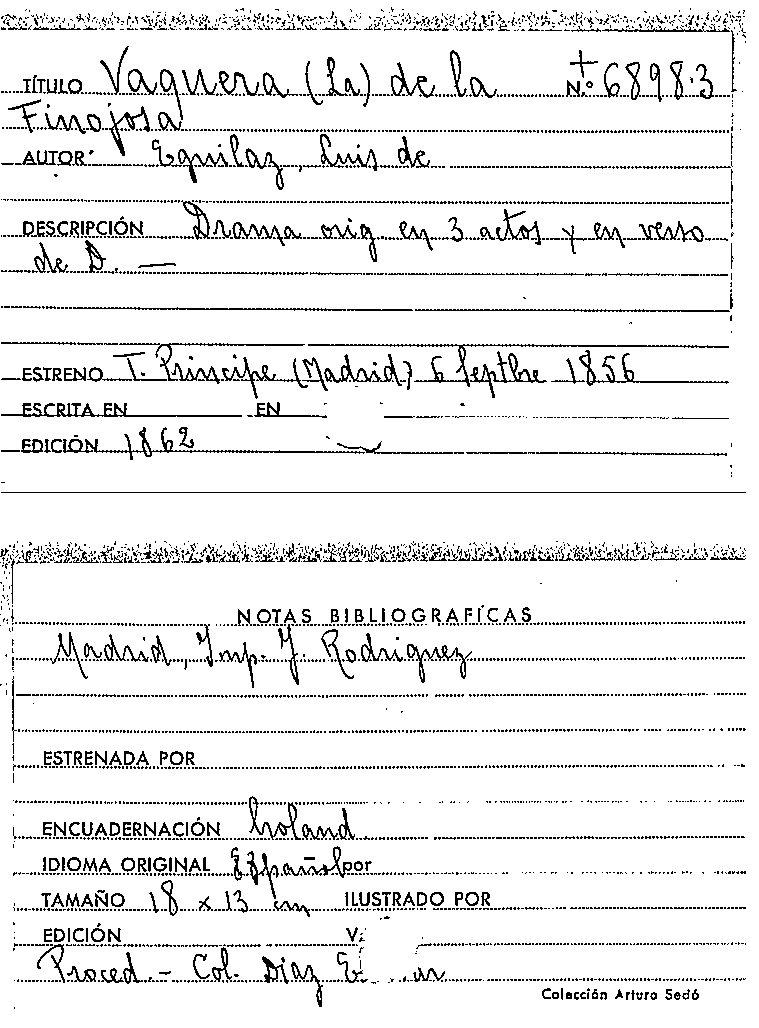 TÍTULO Vaquera (La) de la N.º + 6898·3
Finojosa
AUTOR Eguilaz, Luis de
DESCRIPCIÓN Drama orig en 3 actos y en verso
de D. —
ESTRENO T. Principe (Madrid) 6 Septbre 1856
ESCRITA EN EN
EDICIÓN 1862
NOTAS BIBLIOGRAFÍCAS
Madrid, Imp. J. Rodriguez
ESTRENADA POR
ENCUADERNACIÓN holand
IDIOMA ORIGINAL Español por
TAMAÑO 18 x 13 cm ILUSTRADO POR
EDICIÓN V.
Proced.- Col. Diaz
Colección Arturo Sedó